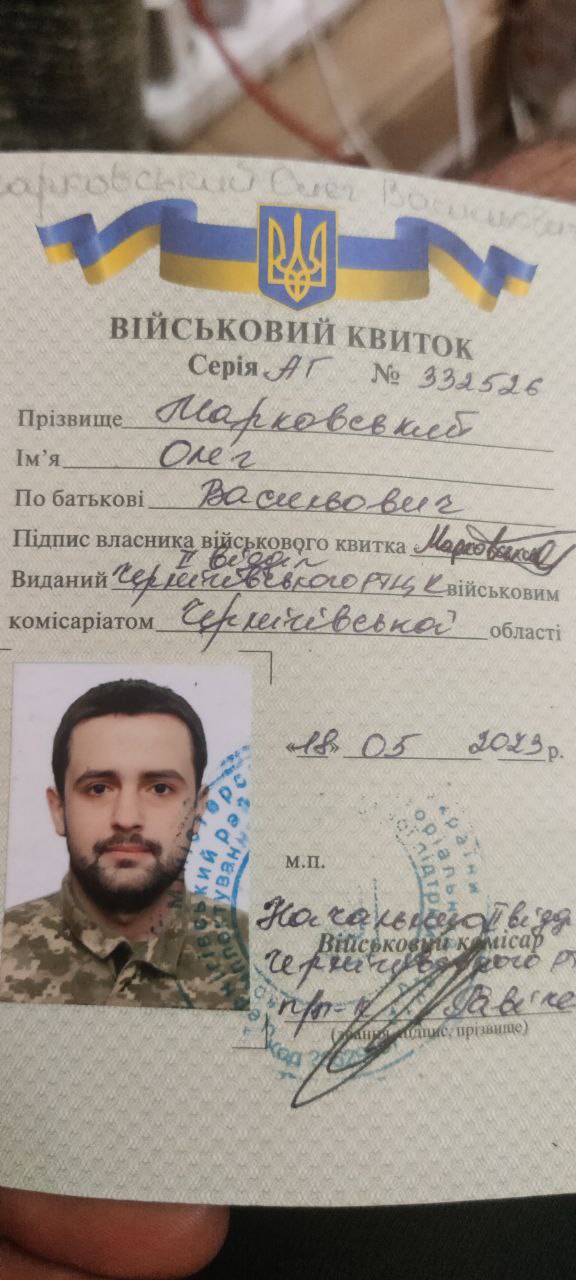 Марковський Олег Васильович
ВІЙСЬКОВИЙ КВИТОК
Серія АГ № 332526
Прізвище Марковський
Ім'я Олег
По батькові Васильович
Підпис власника військового квитка Марковський
ІІ відділ
Виданий Чернігівського РТЦК військовим
комісаріатом Чернігівської області
«18» 05 2023 р.
м.п.
Начальник ІІ відді
Військовий комісар
Чернігівського РТ
п/п-к
(звання, підпис, прізвище)